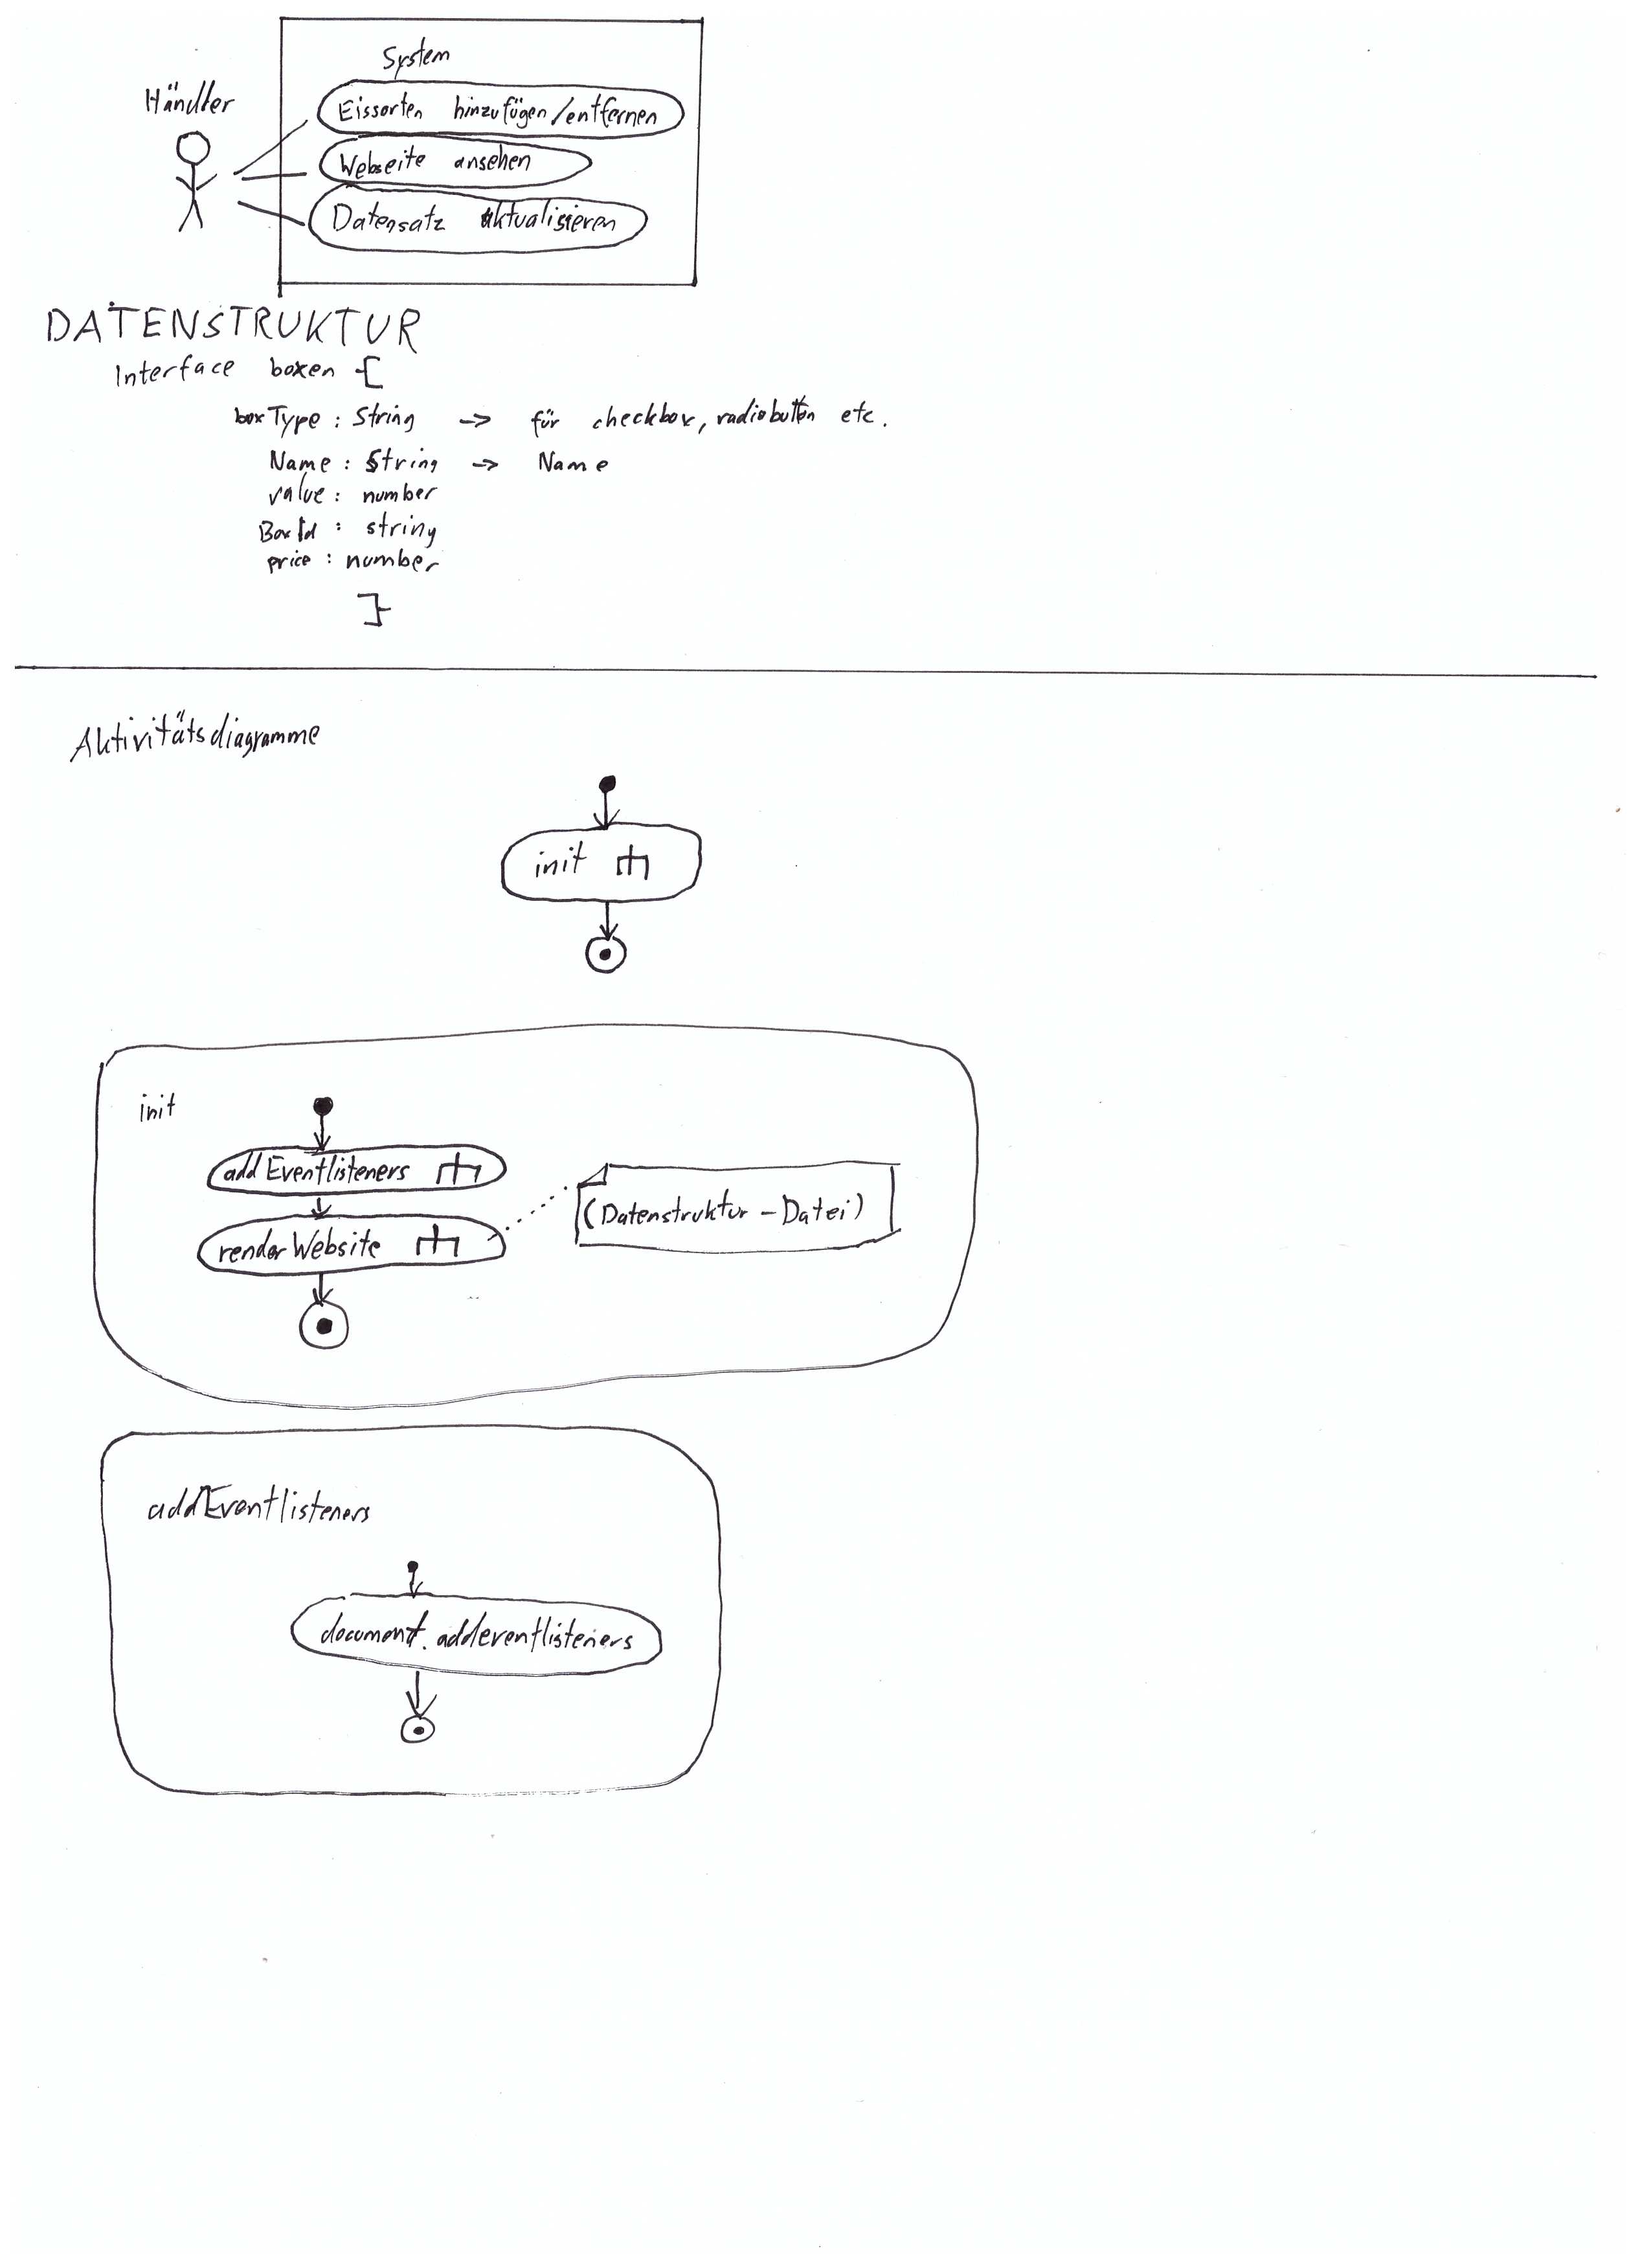 System
Händler
Eissorten hinzufügen/entfernen
Webseite ansehen
Datensatz aktualisieren
DATENSTRUKTUR
Interface boxen {
boxType : String -> für checkbox, radiobutton etc.
Name : String -> Name
value : number
BoxId : string
price : number
}
Aktivitätsdiagramme
init
init
addEventlisteners
(Datenstruktur - Datei)
renderWebsite
addEventlisteners
document.addeventlisteners